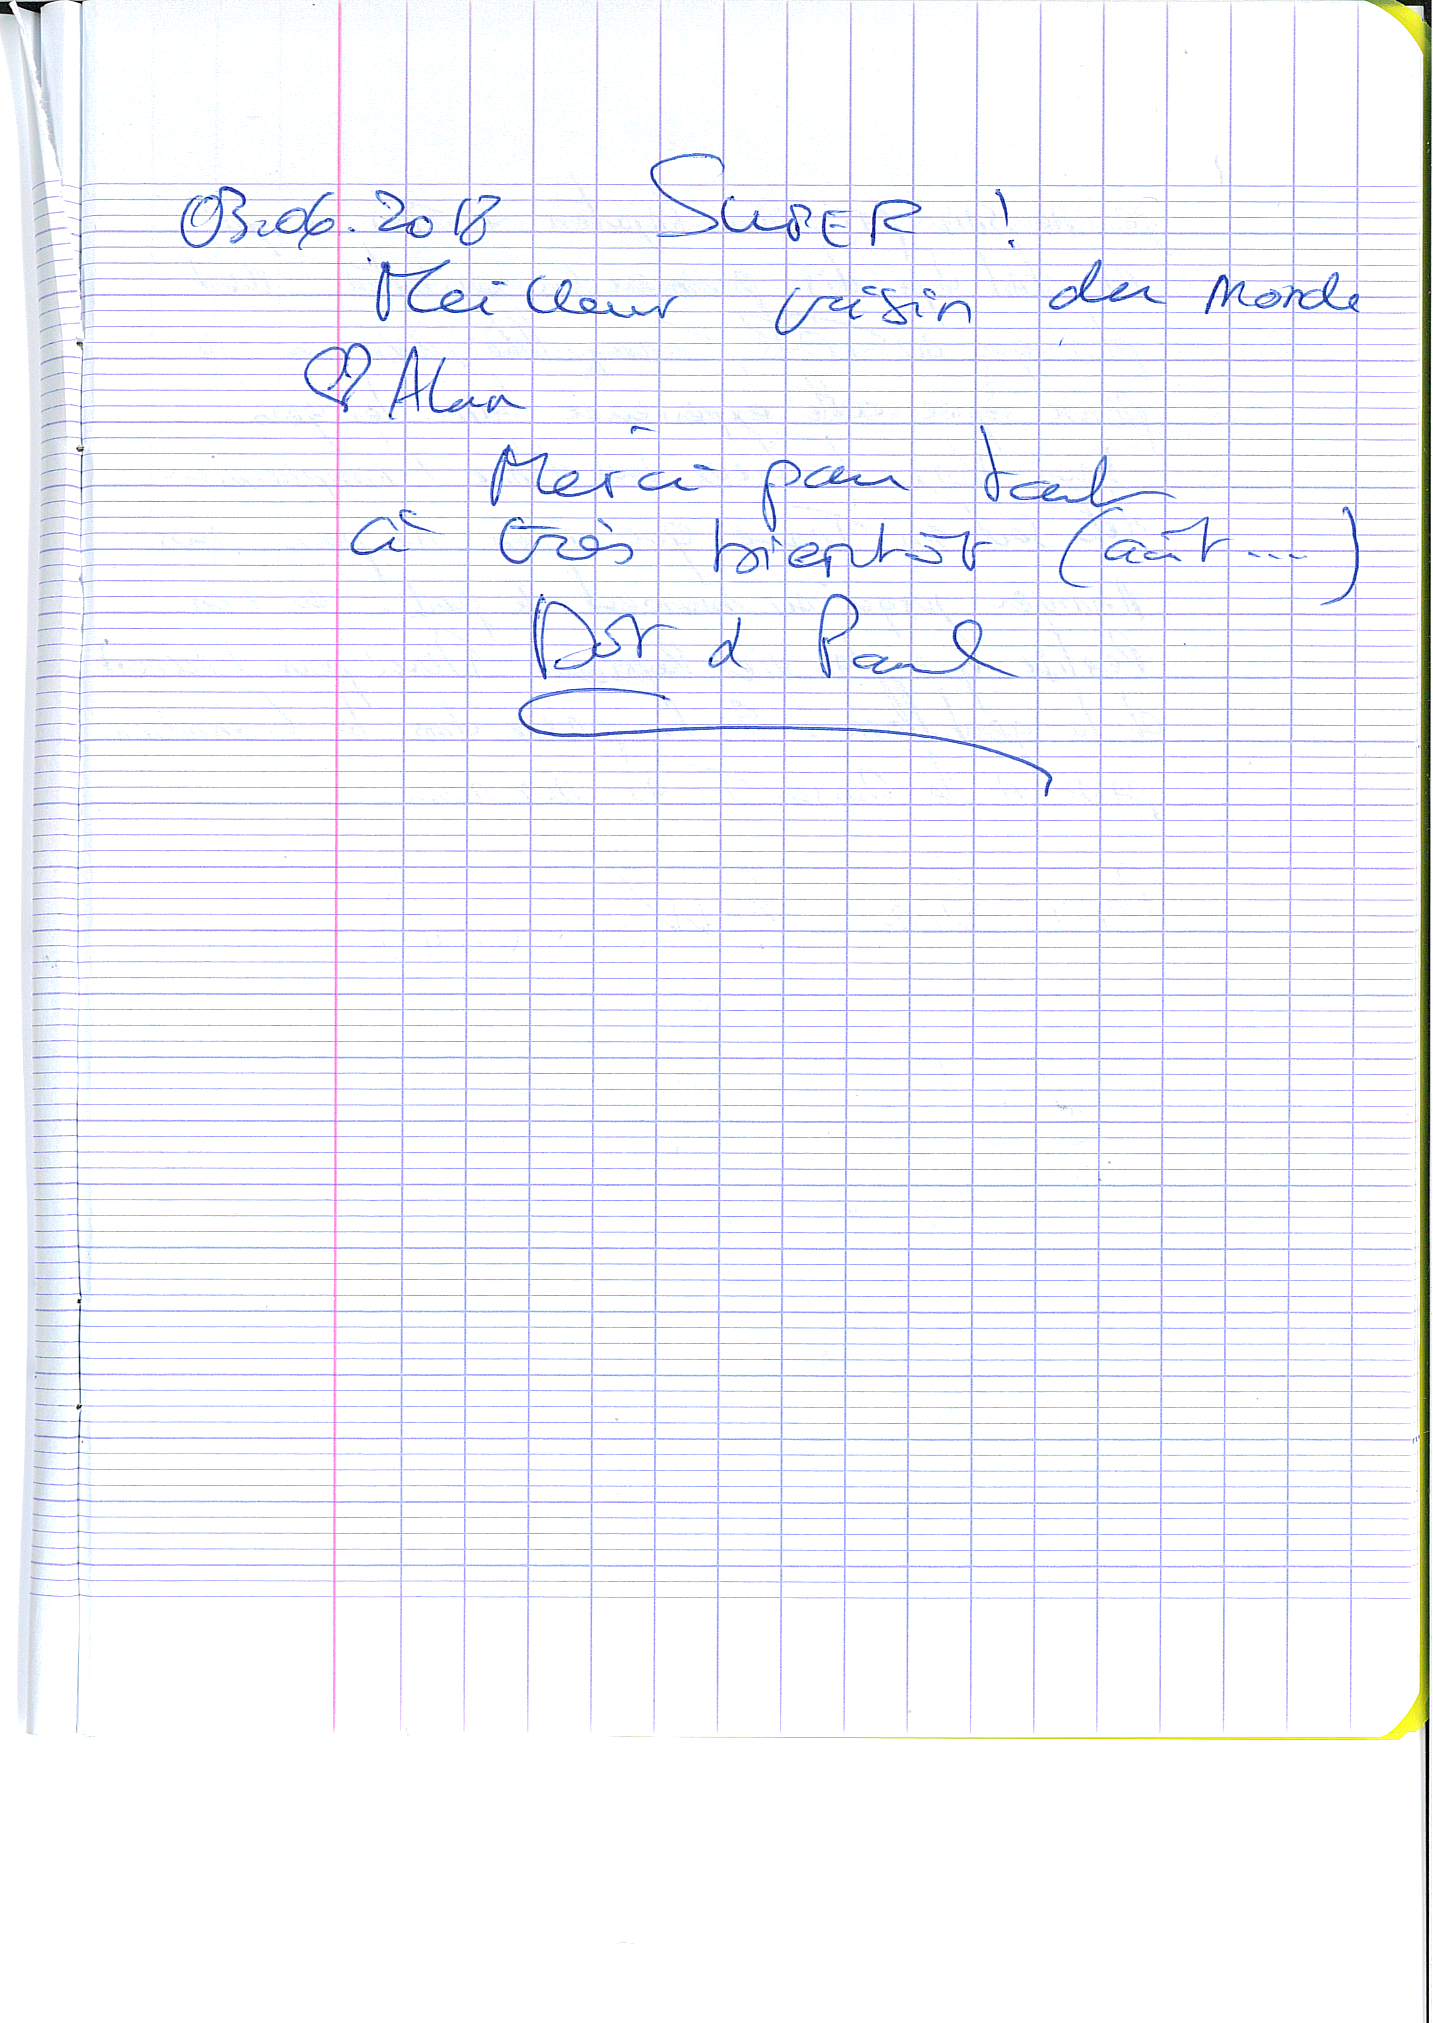 03.06.2018 SUPER !
Meilleur voisin du monde
♡ Alan
Merci pour tout
à très bientôt (août...)
Dot & Paul